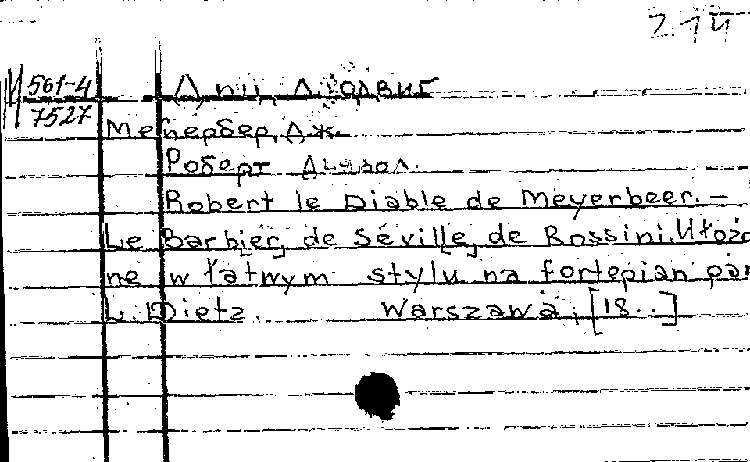 214
М 561-4
7527
Диц, Людвиг
Мейербер, Дж.
Роберт Дьявол.
Robert le Diable de Meyerbeer. –
Le Barbier de Séville, de Rossini. Ułożo
ne w łatwym stylu na fortepian par
L. Dietz. Warszawa, [18..]